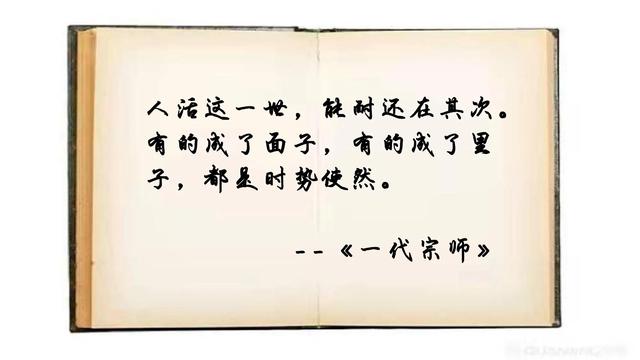 人活这一世，能耐还在其次。
有的成了面子，有的成了里
子，都是时势使然。
--《一代宗师》